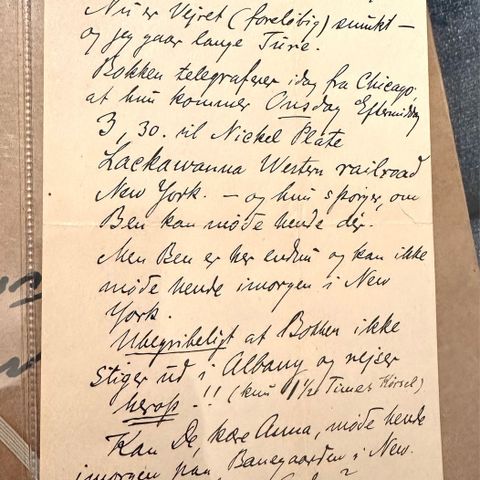 Nu er Vejret (foreløbig) smukt —
og jeg gaar lange Ture.
Bokken telegraferer idag fra Chicago.
at hun kommer Onsdag Eftermiddag
3,30. til Nickel Plate
Lackawanna Western railroad
New York. — og hun spørger, om
Ben kan møde hende der.
Men Ben er her endnu og kan ikke
møde hende imorgen i New
York.
Ubegribeligt at Bokken ikke
stiger ud i Albany og rejser
herop !! (kun 1½ Times Kørsel)
Kan De, kære Anna, møde hende
imorgen paa Banegaarden i New